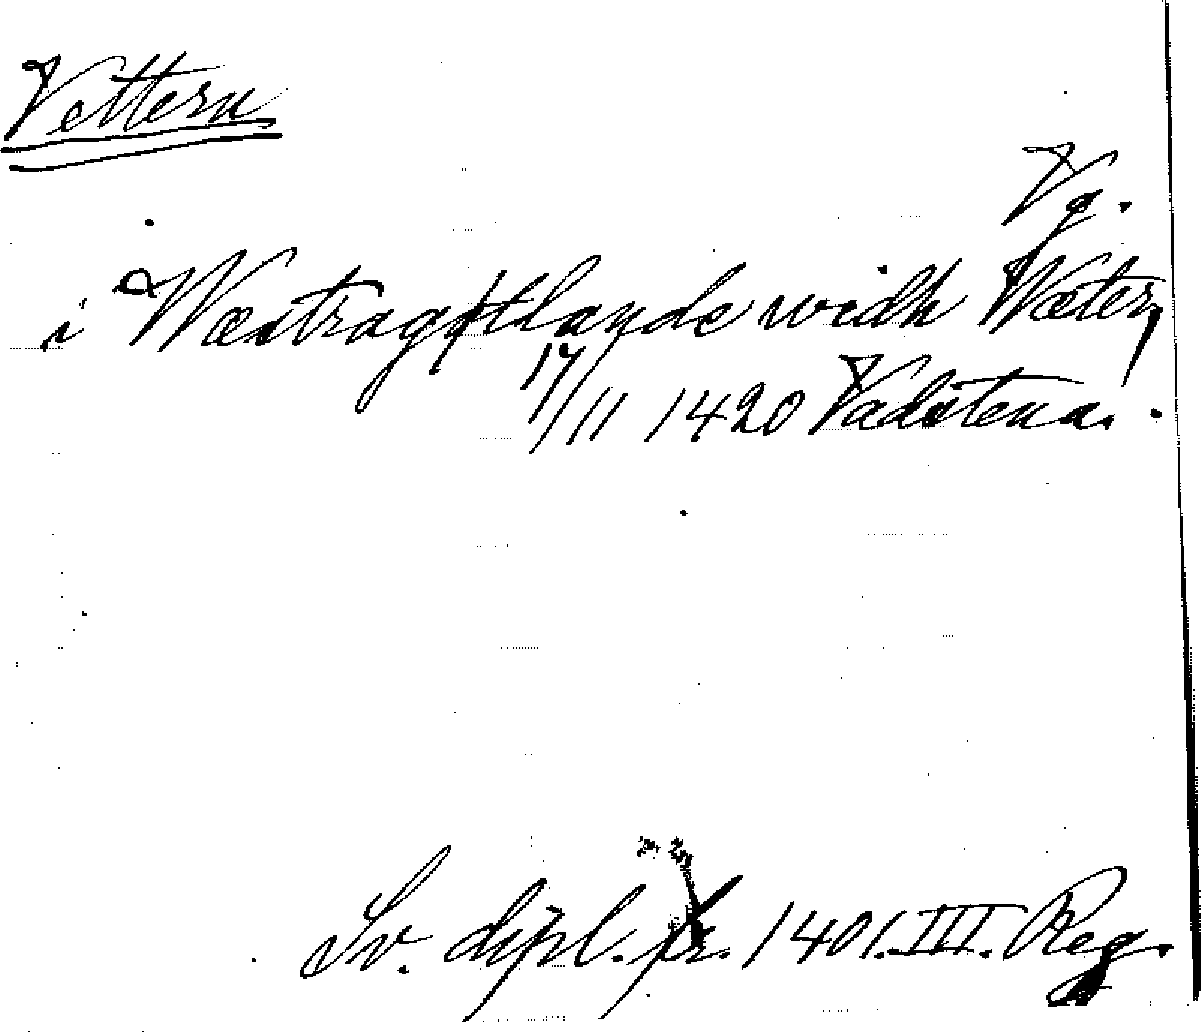 Vettern
Vg.
i Wæstragøtlande widh Wæter,
17/11 1420 Vadstena.
Sv. dipl. fr. 1401. III. Reg.